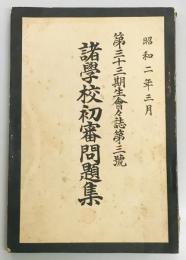 昭和二年三月
第三十三期生會々誌第三號
諸學校初審問題集